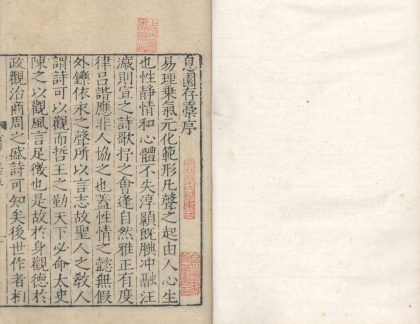 息園存藁序
易理乘氣元化範形凡聲之起由人心生
也性靜情和心體不失淳顥既腴冲融汪
濊則宣之詩歌抒之會逢自然雅正有度
律呂諧應非人協之也蓋性情之懿無假
外鑠依永之聲所以言志故聖人之教人
謂詩可以觀而哲王之勤天下必命太史
陳之以觀風言足徵也是故於身觀德於
政觀治商周之盛詩可知矣後世作者相